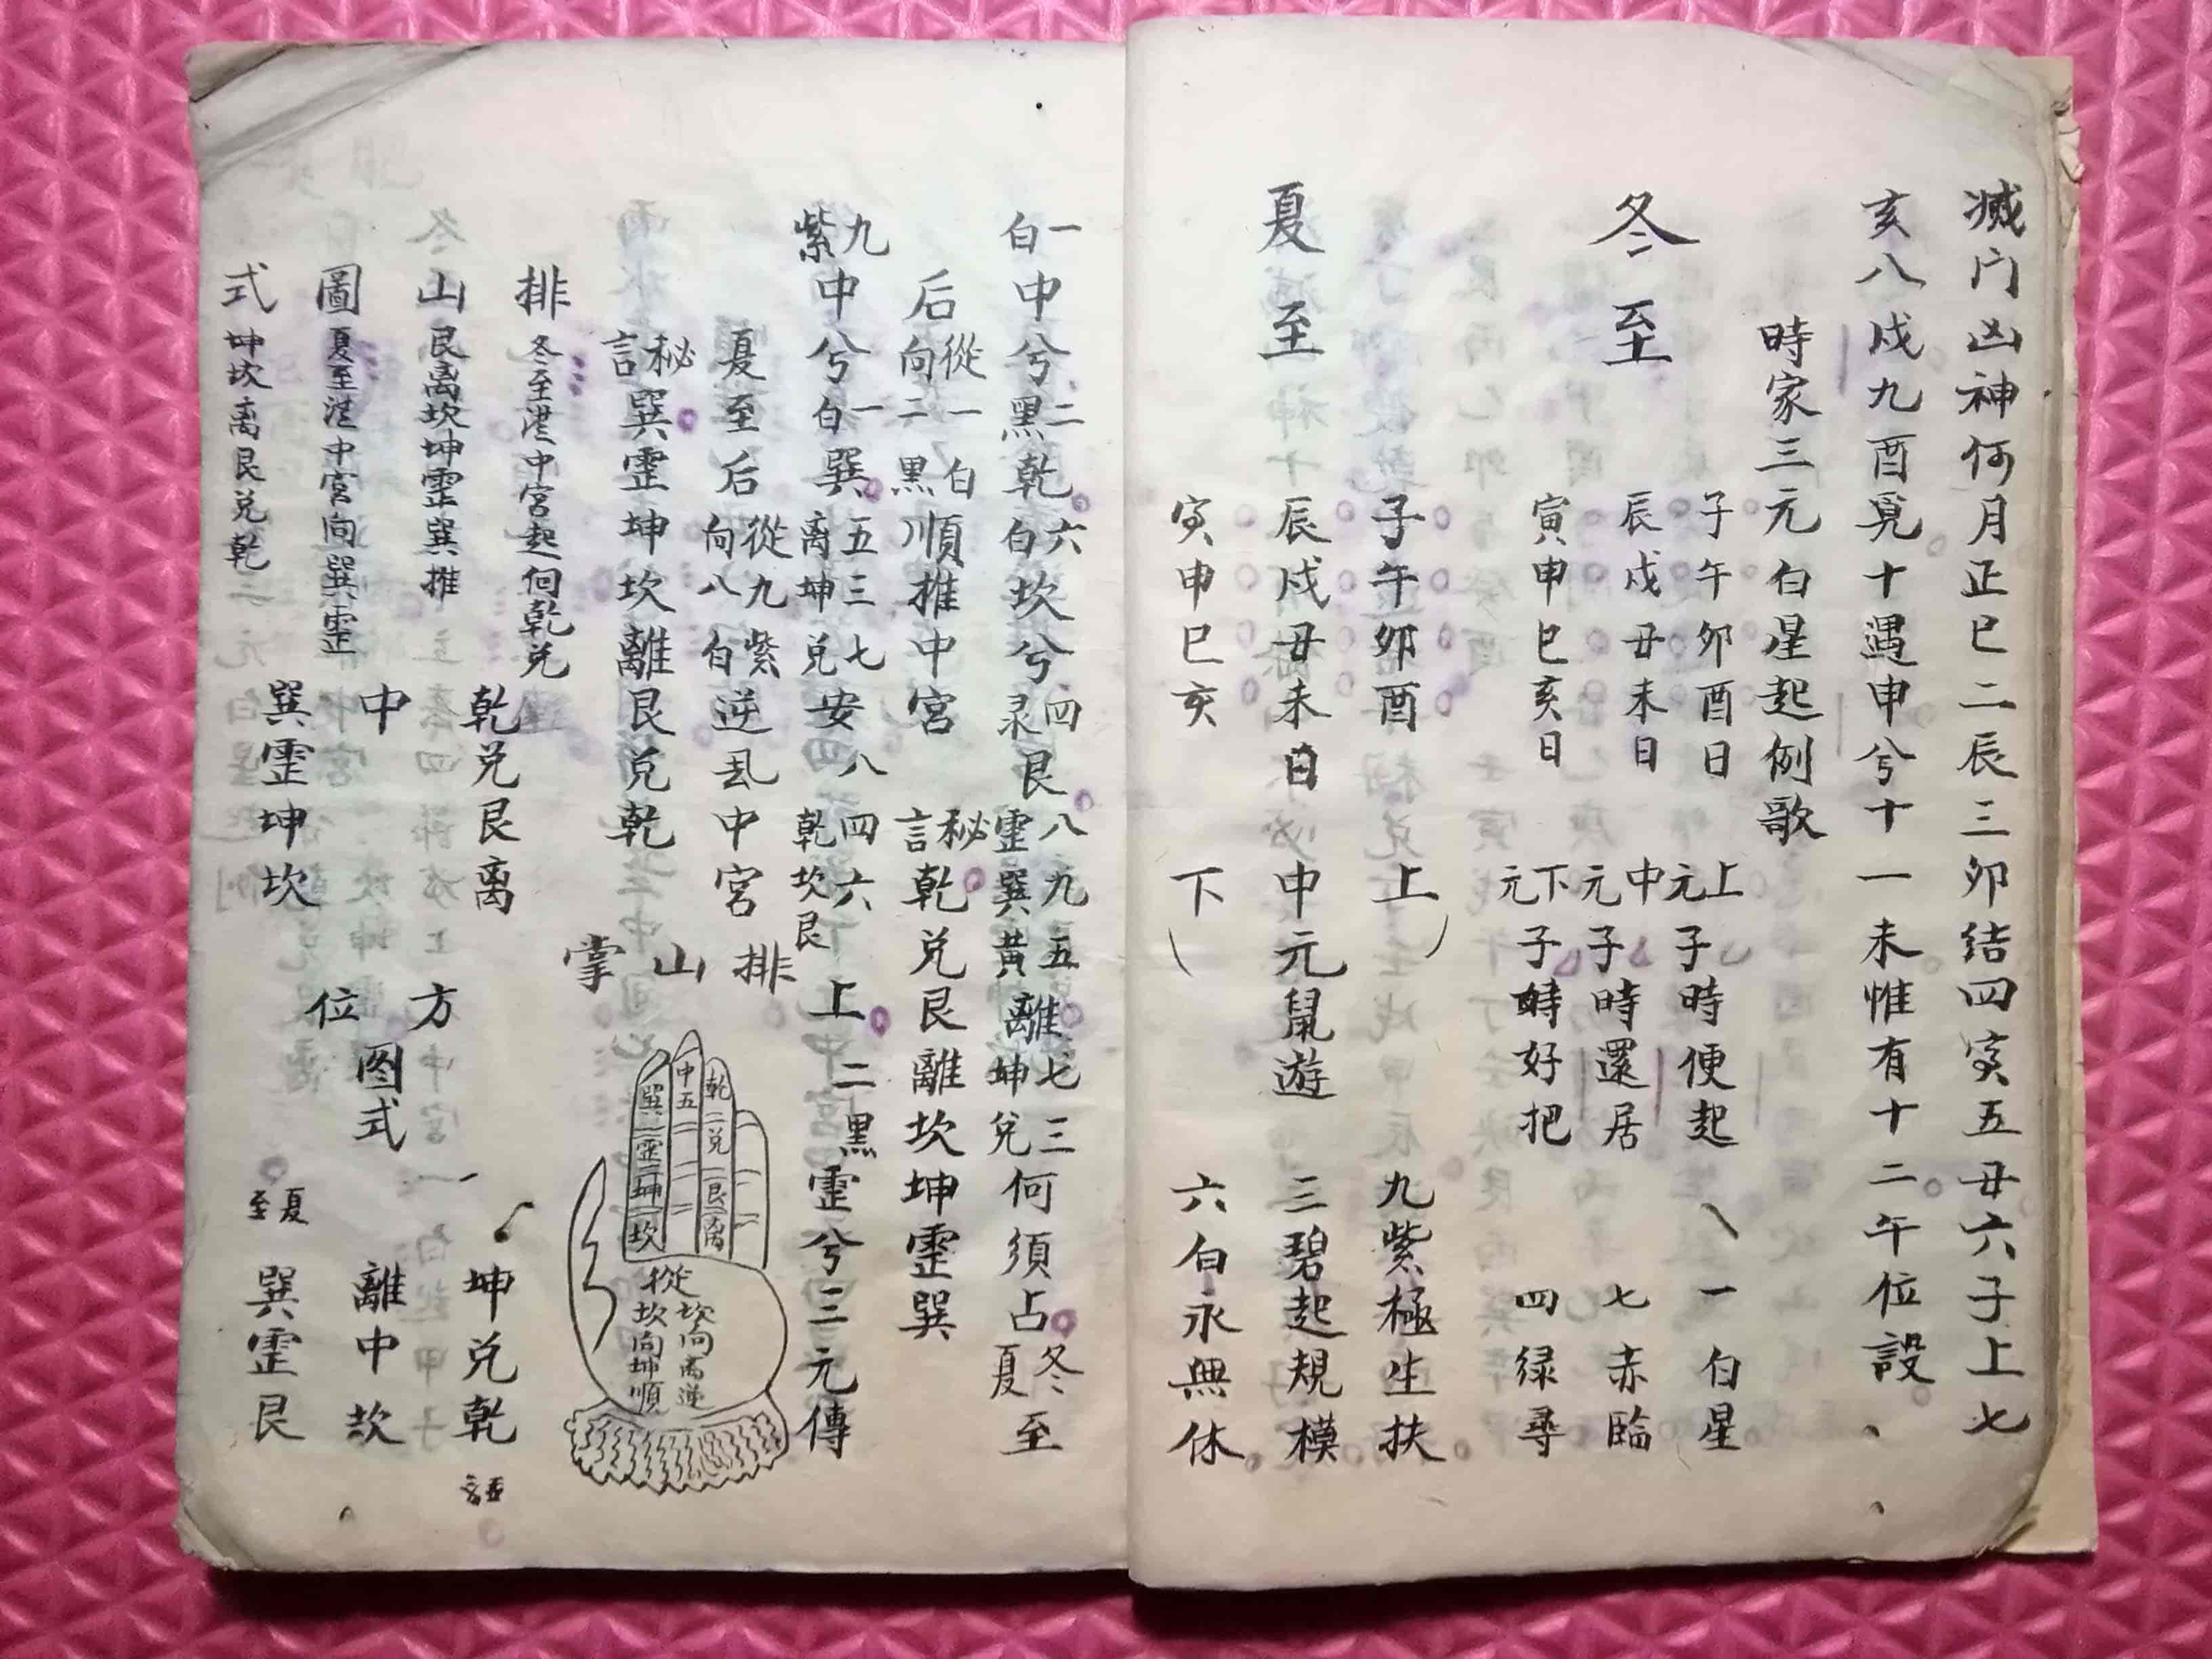 滅门凶神何月正巳二辰三卯结四寅五丑六子上七
亥八戌九酉覓十遇申兮十一未惟有十二午位設
時家三元白星起例歌
冬至
子午卯酉日 上元子時便起 一白星
辰戌丑未日 中元子時還居 七赤臨
寅申巳亥日 下元子時好把 四绿尋
夏至
子午卯酉 上 九紫極生扶
辰戌丑未日 中元鼠遊 三碧起規模
寅申巳亥 下 六白永無休
一白中兮二黑乾六白坎兮四录艮八霊九巽五黄離七坤三兌何須占冬夏至
后從一白向二黑順推中宮 秘言乾兌艮離坎坤霊巽
九紫中兮一白巽五离三坤七兌安八艮四乾六坎上二黑霊兮三元傳
夏至后從九紫向八白逆乱中宮
秘言巽霊坤坎離艮兌乾
排山掌
乾兌艮离
中五
巽霊坤坎
從坎向离逆
坎向坤順
排 冬至從中宮起向乾兌
山 艮离坎坤霊巽推
圖 夏至從中宮向巽霊
式 坤坎离艮兌乾
乾兌艮离
中
巽霊坤坎
方位
图式
坤兌乾
離中坎
夏至 巽霊艮